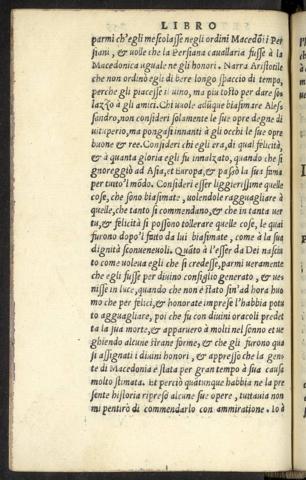 LIBRO
parmi ch'egli mescolasse negli ordini Macedōi i Per
siani, & uolle che la Persiana cauallaria fusse à la
Macedonica uguale ne gli honori. Narra Aristotile
che non ordinò egli di bere longo spaccio di tempo,
perche gli piacesse il uino, ma piu tosto per dare so
lazzo à gli amici. Chi uuole adūque biasimare Ales
sandro, non consideri solamente le sue opre degne di
uituperio, ma pongasi innanti à gli occhi le sue opre
buone & ree. Consideri chi egli era, di qual felicità,
& à quanta gloria egli fu innalzato, quando che si
gnoreggiò ad Asia, et Europa, & passò la sua fama
per tutto'l mōdo. Consideri esser liggierissime quelle
cose, che sono biasimate, uolendole ragguagliare à
quelle, che tanto si commendano, & che in tanta uer
tu, & felicità si possono tollerare quelle cose, le quai
furono dopo'l fatto da lui biasimate, come à la sua
dignità sconueneuoli. Quāto à l'esser da Dei nasciu
to come uoleua egli che si credesse, parmi ueramente
che egli fusse per diuino consiglio generato, & ue-
nisse in luce, quando che non è stato fin'ad hora huo
mo che per felici, & honorate imprese l'habbia potu
to agguagliare, poi che fu con diuini oracoli predet
ta la sua morte, & apparuero à molti nel sonno et ue
ghiendo alcune strane forme, & che gli furono qua
si assignati i diuini honori, & appresso che la gen-
te di Macedonia è stata per gran tempo à sua causa
molto stimata. Et perciò quatunque habbia ne la pre
sente historia ripreso alcune sue opere, tuttauia non
mi pentirò di commendarlo con ammiratione. Io à